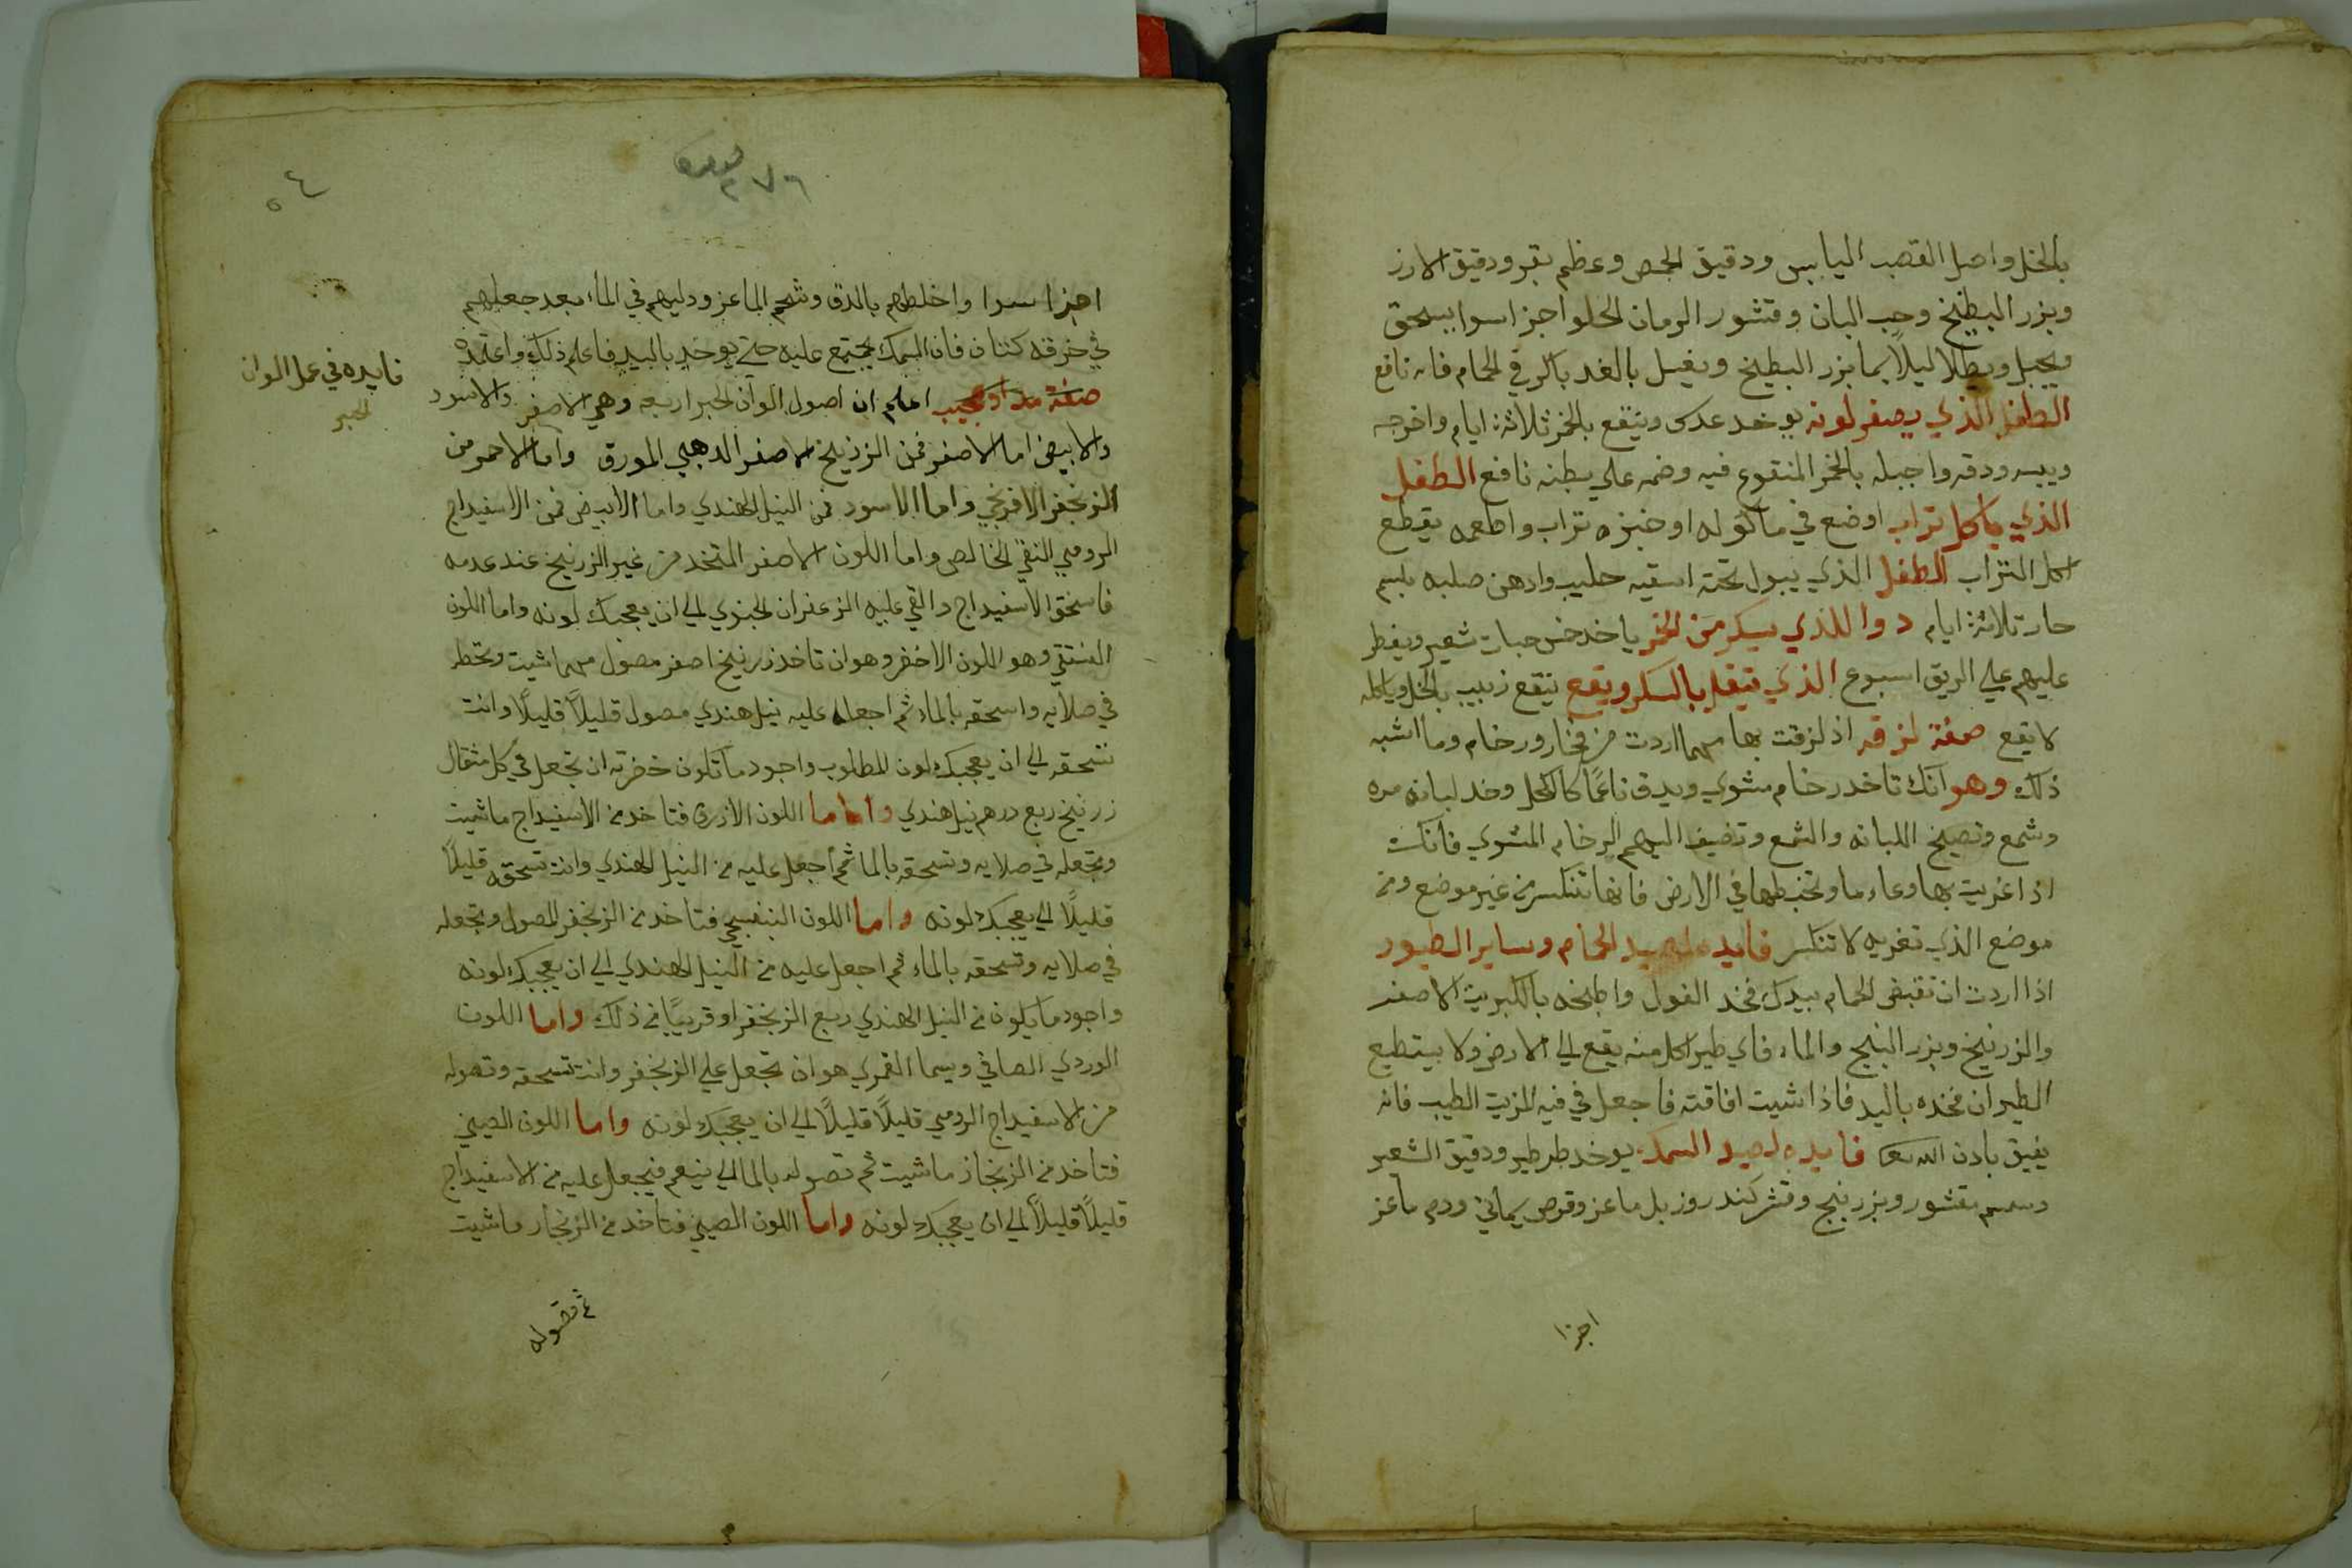 بالخل واصل القصب اليابس ودقيق الحمص وعظم بقر ودقيق الارز
وبزر البطيخ وحب البان وقشور الرمان الحلو اجزا سوا يسحق
ويجبل ويطلا ليلاً بما بزر البطيخ ويغسل بالغد باكر في الحمام فانه نافع
الطفل الذي يصفر لونه يوخد عدس وينقع بالخمر ثلاثة ايام واخرجه
ويبسه ودقه واجبله بالخمر المنقوع فيه وضمه علي بطنه نافع الطفل
الذي ياكل تراب اوضع في ماكوله او خبزه تراب واطعمه يقطع
اكل التراب الطفل الذي يبول تحته اسقيه حليب وادهن صلبه بلسم
حار تلاتة ايام دوا للذي يسكر من الخمر ياخد خمس حبات شعير ويفطر
عليهم علي الريق اسبوع الذي يتقل بالسكر ويقع ينقع زبيب بالخل وياكله
لا يقع صفة لزقه اذ لزقت بها مهما اردت من فخار ورخام وما اشبه
ذلك وهو انك تاخد رخام مشوي ويدق ناعمًا كالكحل وخد لبانه مره
وشمع وتصيح اللبانه والشمع وتضيف اليهم الرخام المشوي فانك
اذا غريت بها وعاء ما وتخبطها في الارض فانها تنكسر من غير موضع ومن
موضع الذي تغريه لا تنكسر فايده علي صيد الحمام وساير الطيور
اذا اردت ان تقبض الحمام بيدك فخد الفول واطبخه بالكبريت الاصفر
والزرنيخ وبزر البنج والماء فاي طير اكل منه يقع الي الارض ولا يستطيع
الطيران فخده باليد فاذا شيت افاقته فاجعل في فيه الزيت الطيب فانه
يفيق بادن الله تعا فايده لصيد السمك يوخد طرطير ودقيق الشعير
وسمسم مقشور وبزر بنج وقشر كندر وزبل ماعز وقرص يماني ودم ماعز
اجزا
٢٧٦
٥٤
اجزا سوا واخلطهم بالدق وشحم الماعز ودليهم في الماء بعد جعلهم
في خرقه كتان فان السمك يجتمع عليه حتي يوخد باليد فاعلم ذلك واعتمده
فايده في عمل الوان
الحبر
صفة مداد عجيب اعلم ان اصول الوان الحبر اربعه وهي الاصفر والاسود
والابيض اما الاصفر فمن الزرنيخ الاصفر الدهبي المورق واما الاحمر من
الزنجفر الافرنجي واما الاسود فمن النيل الهندي واما الابيض فمن الاسفيداج
الرومي النقي الخالص واما اللون الاصفر المتخد من غير الزرنيخ عند عدمه
فاسحق الاسفيداج والقي عليه الزعفران الجنوي الي ان يعجبك لونه واما اللون
الفستقي وهو اللون الاخضر وهو ان تاخذ زرنيخ اصفر مصول مهما شيت وتحطه
في صلايه واسحقه بالماء ثم اجعل عليه نيل هندي مصول قليلاً قليلاً وانت
تسحقه الي ان يعجبك لون المطلوب واجود ما تكون خضرته ان تجعل في كل مثقال
زرنيخ ربع درهم نيل هندي واما ما اللون الازرق فتاخد من الاسفيداج ما شيت
وتجعله في صلايه وتسحقه بالما ثم اجعل عليه من النيل الهندي وانت تسحقه قليلاً
قليلاً الي يعجبك لونه واما اللون البنفسجي فتاخد من الزنجفر المصول وتجعله
في صلايه وتسحقه بالماء ثم اجعل عليه من النيل الهندي الي ان يعجبك لونه
واجود ما يكون من النيل الهندي ربع الزنجفر او قريبًا من ذلك واما اللون
الوردي الصافي ويسما القمري هو ان تجعل علي الزنجفر وانت تسحقه وتصوله
من الاسفيداج الرومي قليلاً قليلاً الي ان يعجبك لونه واما اللون الصيني
فتاخد من الزنجاز ما شيت ثم تصوله بالما الي ينعم فيجعل عليه من الاسفيداج
قليلاً قليلاً الي ان يعجبك لونه واما اللون الصيني فتاخد من الزنجار ما شيت
ثم تصوله